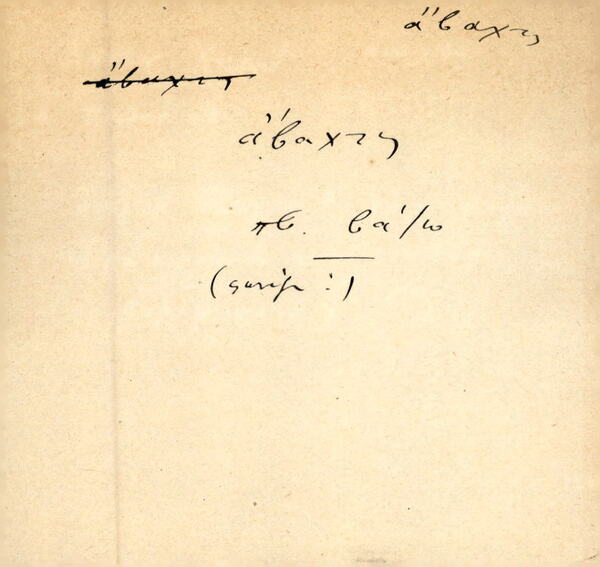 ἄβαχτη
ἄβαχτη
ἄβαχτη
πβ. βάζω